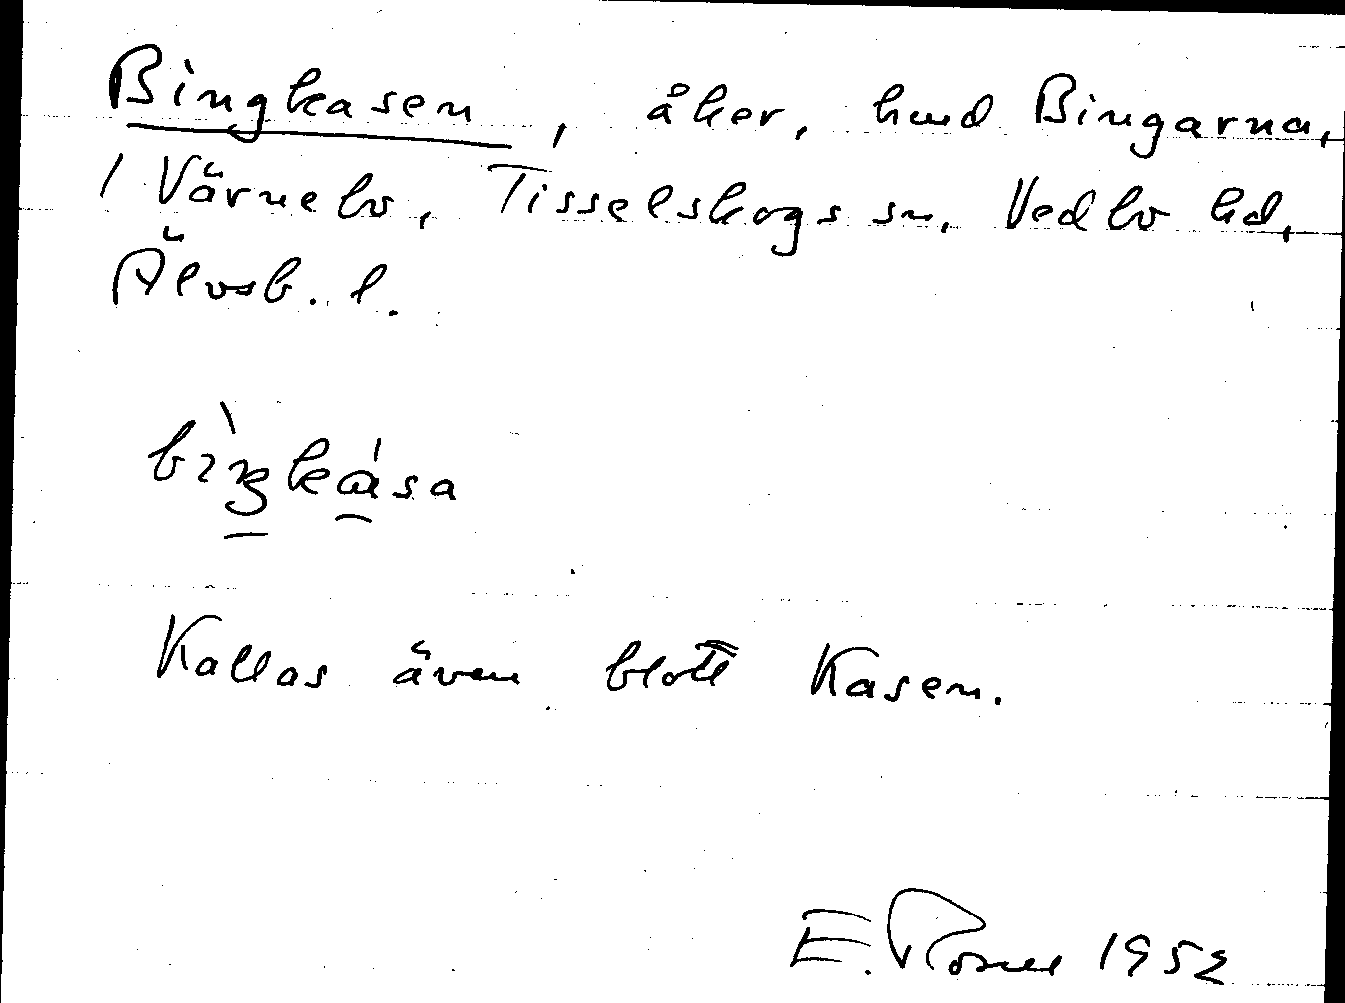 Bingkasen, åker, hmd Bingarna,
1 Värnebo, Tisselskogs sn, Vedbo hd,
Älvsb. l.
Kallas även blott Kasen.
E. 1952